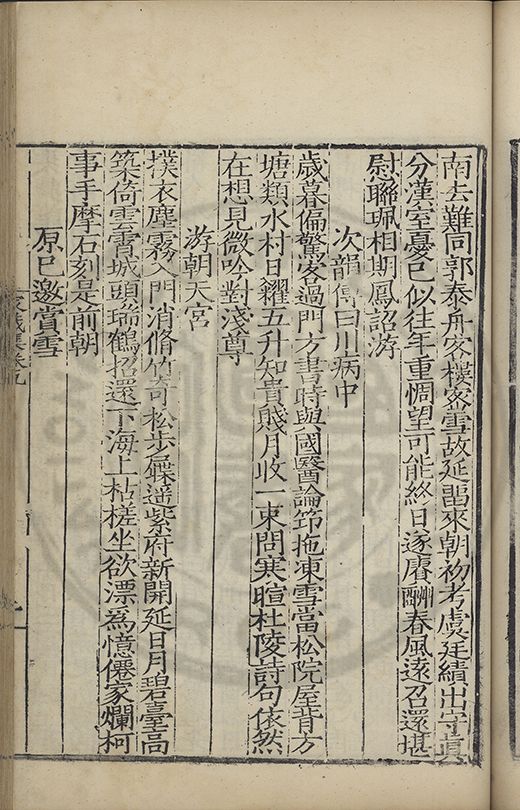 南去難同郭泰舟客樓密雪故延留來朝初考虞廷績出守眞
分漢室憂已似往年重悵望可能終日逐賡酬春風遠召還堪
慰聯珮相期鳳詔游
次韻傅曰川病中
歲暮偏驚客過門方書時與國醫論筇拖凍雪當松院屋背方
塘類水村日糴五升知貴賤月收一束問寒暄杜陵詩句依然
在想見微吟對淺尊
游朝天宮
撲衣塵霧入門消脩竹奇松步屧遥紫府新開延日月碧臺高
築倚雲霄城頭瑞鶴招還下海上枯槎坐欲漂爲憶僊家爛柯
事手摩石刻是前朝
原巳邀賞雪